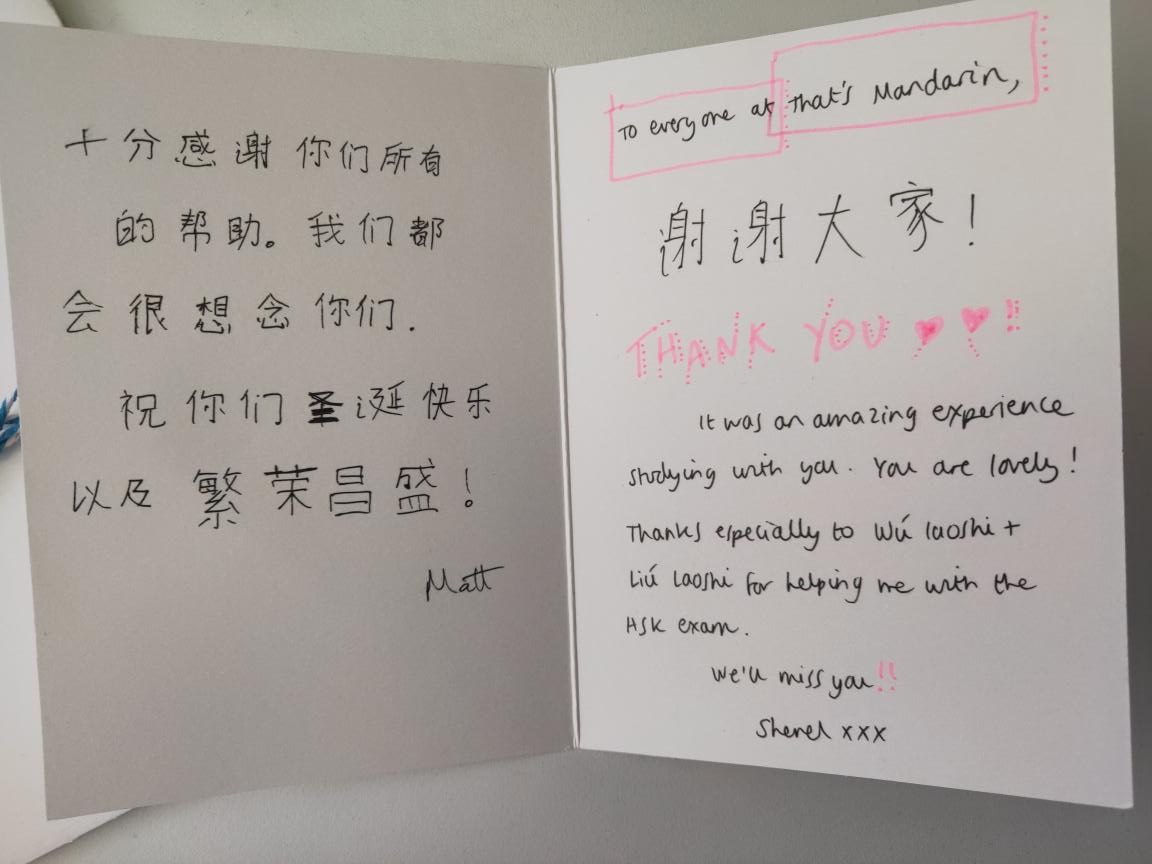 十分感谢你们所有
的帮助。我们都
会很想念你们.
祝你们圣诞快乐
以及繁荣昌盛!
Matt
To everyone at that's Mandarin,
谢谢大家!
THANK YOU ♥ ♥ !!
It was an amazing experience
studying with you. You are lovely!
Thanks especially to Wú laoshi +
Liú Laoshi for helping me with the
HSK exam.
We'll miss you!!
Sherel xxx